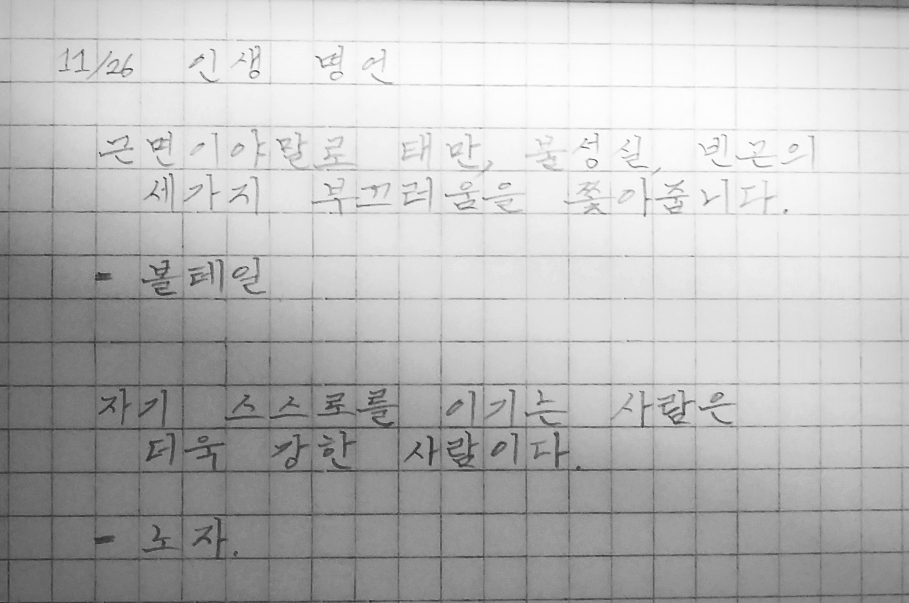 11/26 인생 명언
근면이야말로 태만, 불성실, 빈곤의
세가지 부끄러움을 쫓아줍니다.
- 볼테일
자기 스스로를 이기는 사람은
더욱 강한 사람이다.
- 노자.